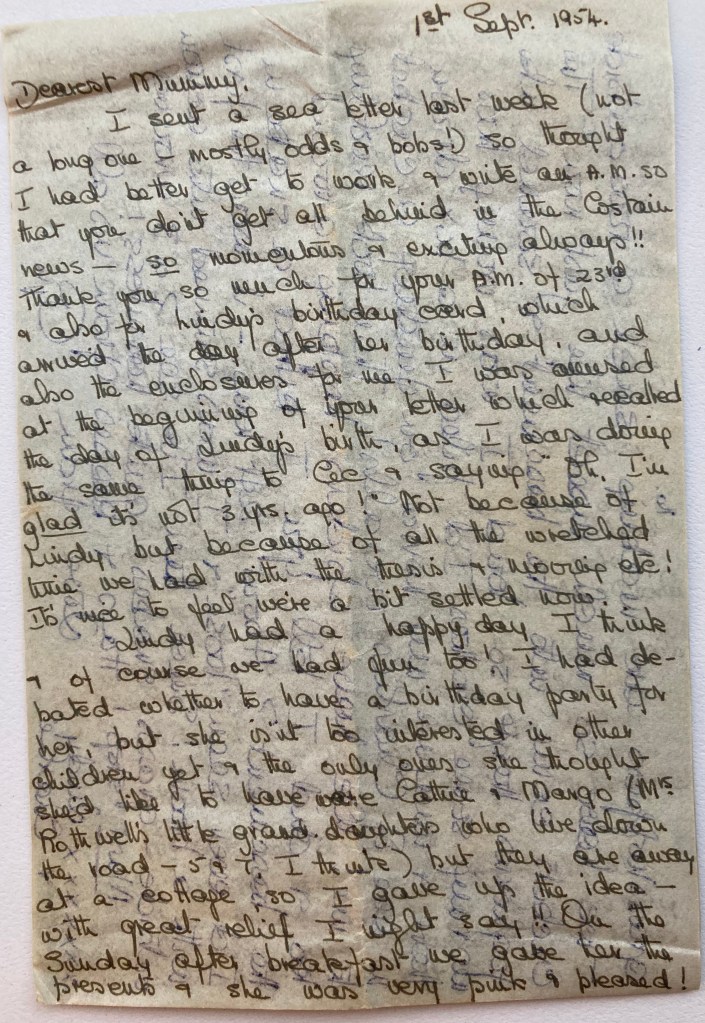 1st Sept. 1954.
Dearest Mummy,
I sent a sea letter last week (not
a long one – mostly odds & bobs!) so thought
I had better get to work & write an A.M. so
that you don't get all behind in the Costain
news – so momentous & exciting always!!
Thank you so much for your A.M. of 23rd
& also for Lindy's birthday card, which
arrived the day after her birthday, and
also the enclosures for me. I was amused
at the beginning of your letter which recalled
the day of Lindy's birth, as I was doing
the same thing to Cec & saying "Oh, I'm
glad it's not 3 yrs. ago!" Not because of
Lindy but because of all the wretched
time we had with the thesis & moving etc!
It's nice to feel we're a bit settled now.
Lindy had a happy day I think
& of course we had fun too! I had de-
bated whether to have a birthday party for
her, but she isn't too interested in other
children yet & the only ones she thought
she'd like to have were Cathie & Margo (Mrs
Rothwell's little grand.daughters who live down
the road – 5 & 7. I think) but they are away
at a cottage so I gave up the idea –
with great relief I might say!! On the
Sunday after breakfast we gave her the
presents & she was very pink & pleased!